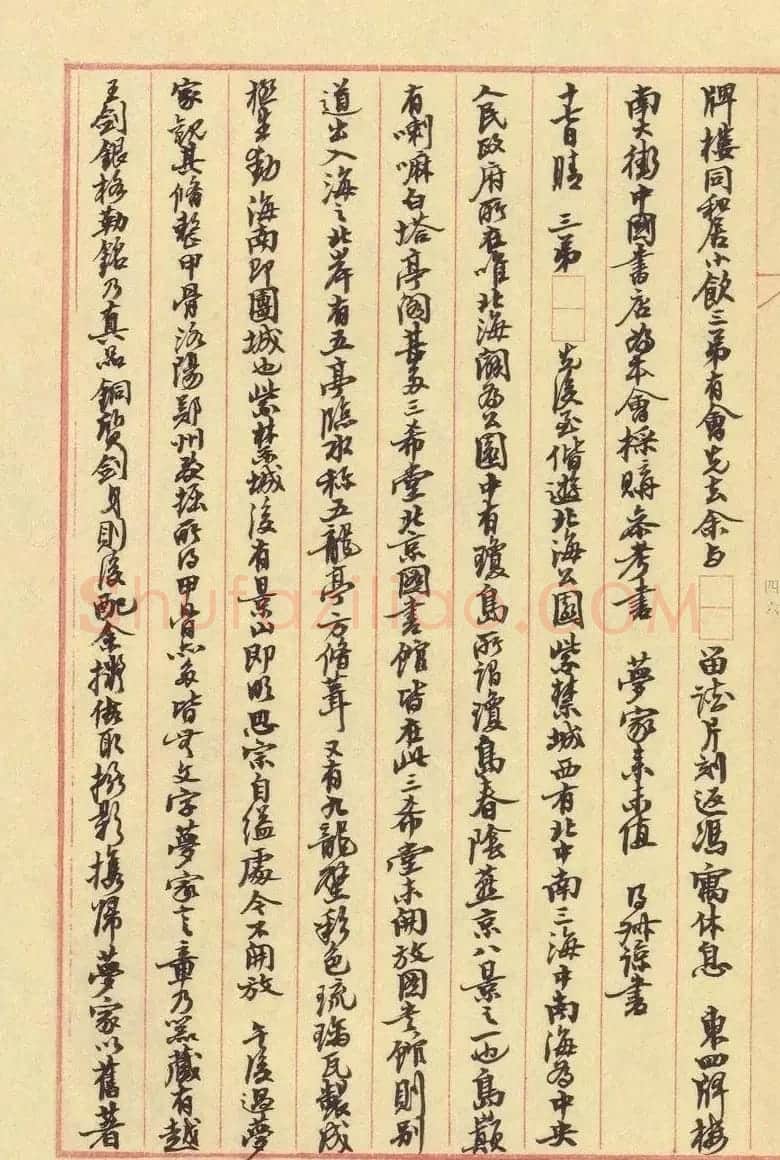 牌樓同和居小飲三弟有會先去余与□□留談片刻返馮寓休息 東四牌樓
南大街中國書店為本會採購參考書 夢家來未值 得冊諒書
十七日晴 三弟□□先後至偕遊北海公園紫禁城西有北中南三海中南海為中央
人民政府所在唯北海闢為公園中有瓊島所謂瓊島春陰燕京八景之一也島巔
有喇嘛白塔亭閣甚多三希堂北京圖書館皆在此三希堂未開放圖書館則別
道出入海之北岸有五亭臨水称五龍亭方脩葺又有九龍壁彩色琉璃瓦製成
極生動海南即團城也紫禁城後有景山即明思宗自縊處今不開放 午後過夢
家觀其脩整甲骨洛陽鄭州發掘所得甲骨亦多皆無文字夢家言章乃器藏有越
王劍銀格勒銘乃真品銅質劍身則後配余擬借取撮影攜歸夢家以舊著
四六
Shufaziliao.COM